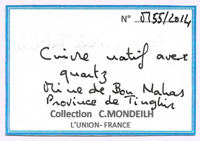 N° M55/2014
Cuivre natif avec
quartz
Mine de Bou Nahas
Province de Tinghir
Collection C.MONDEILH
L'UNION- FRANCE